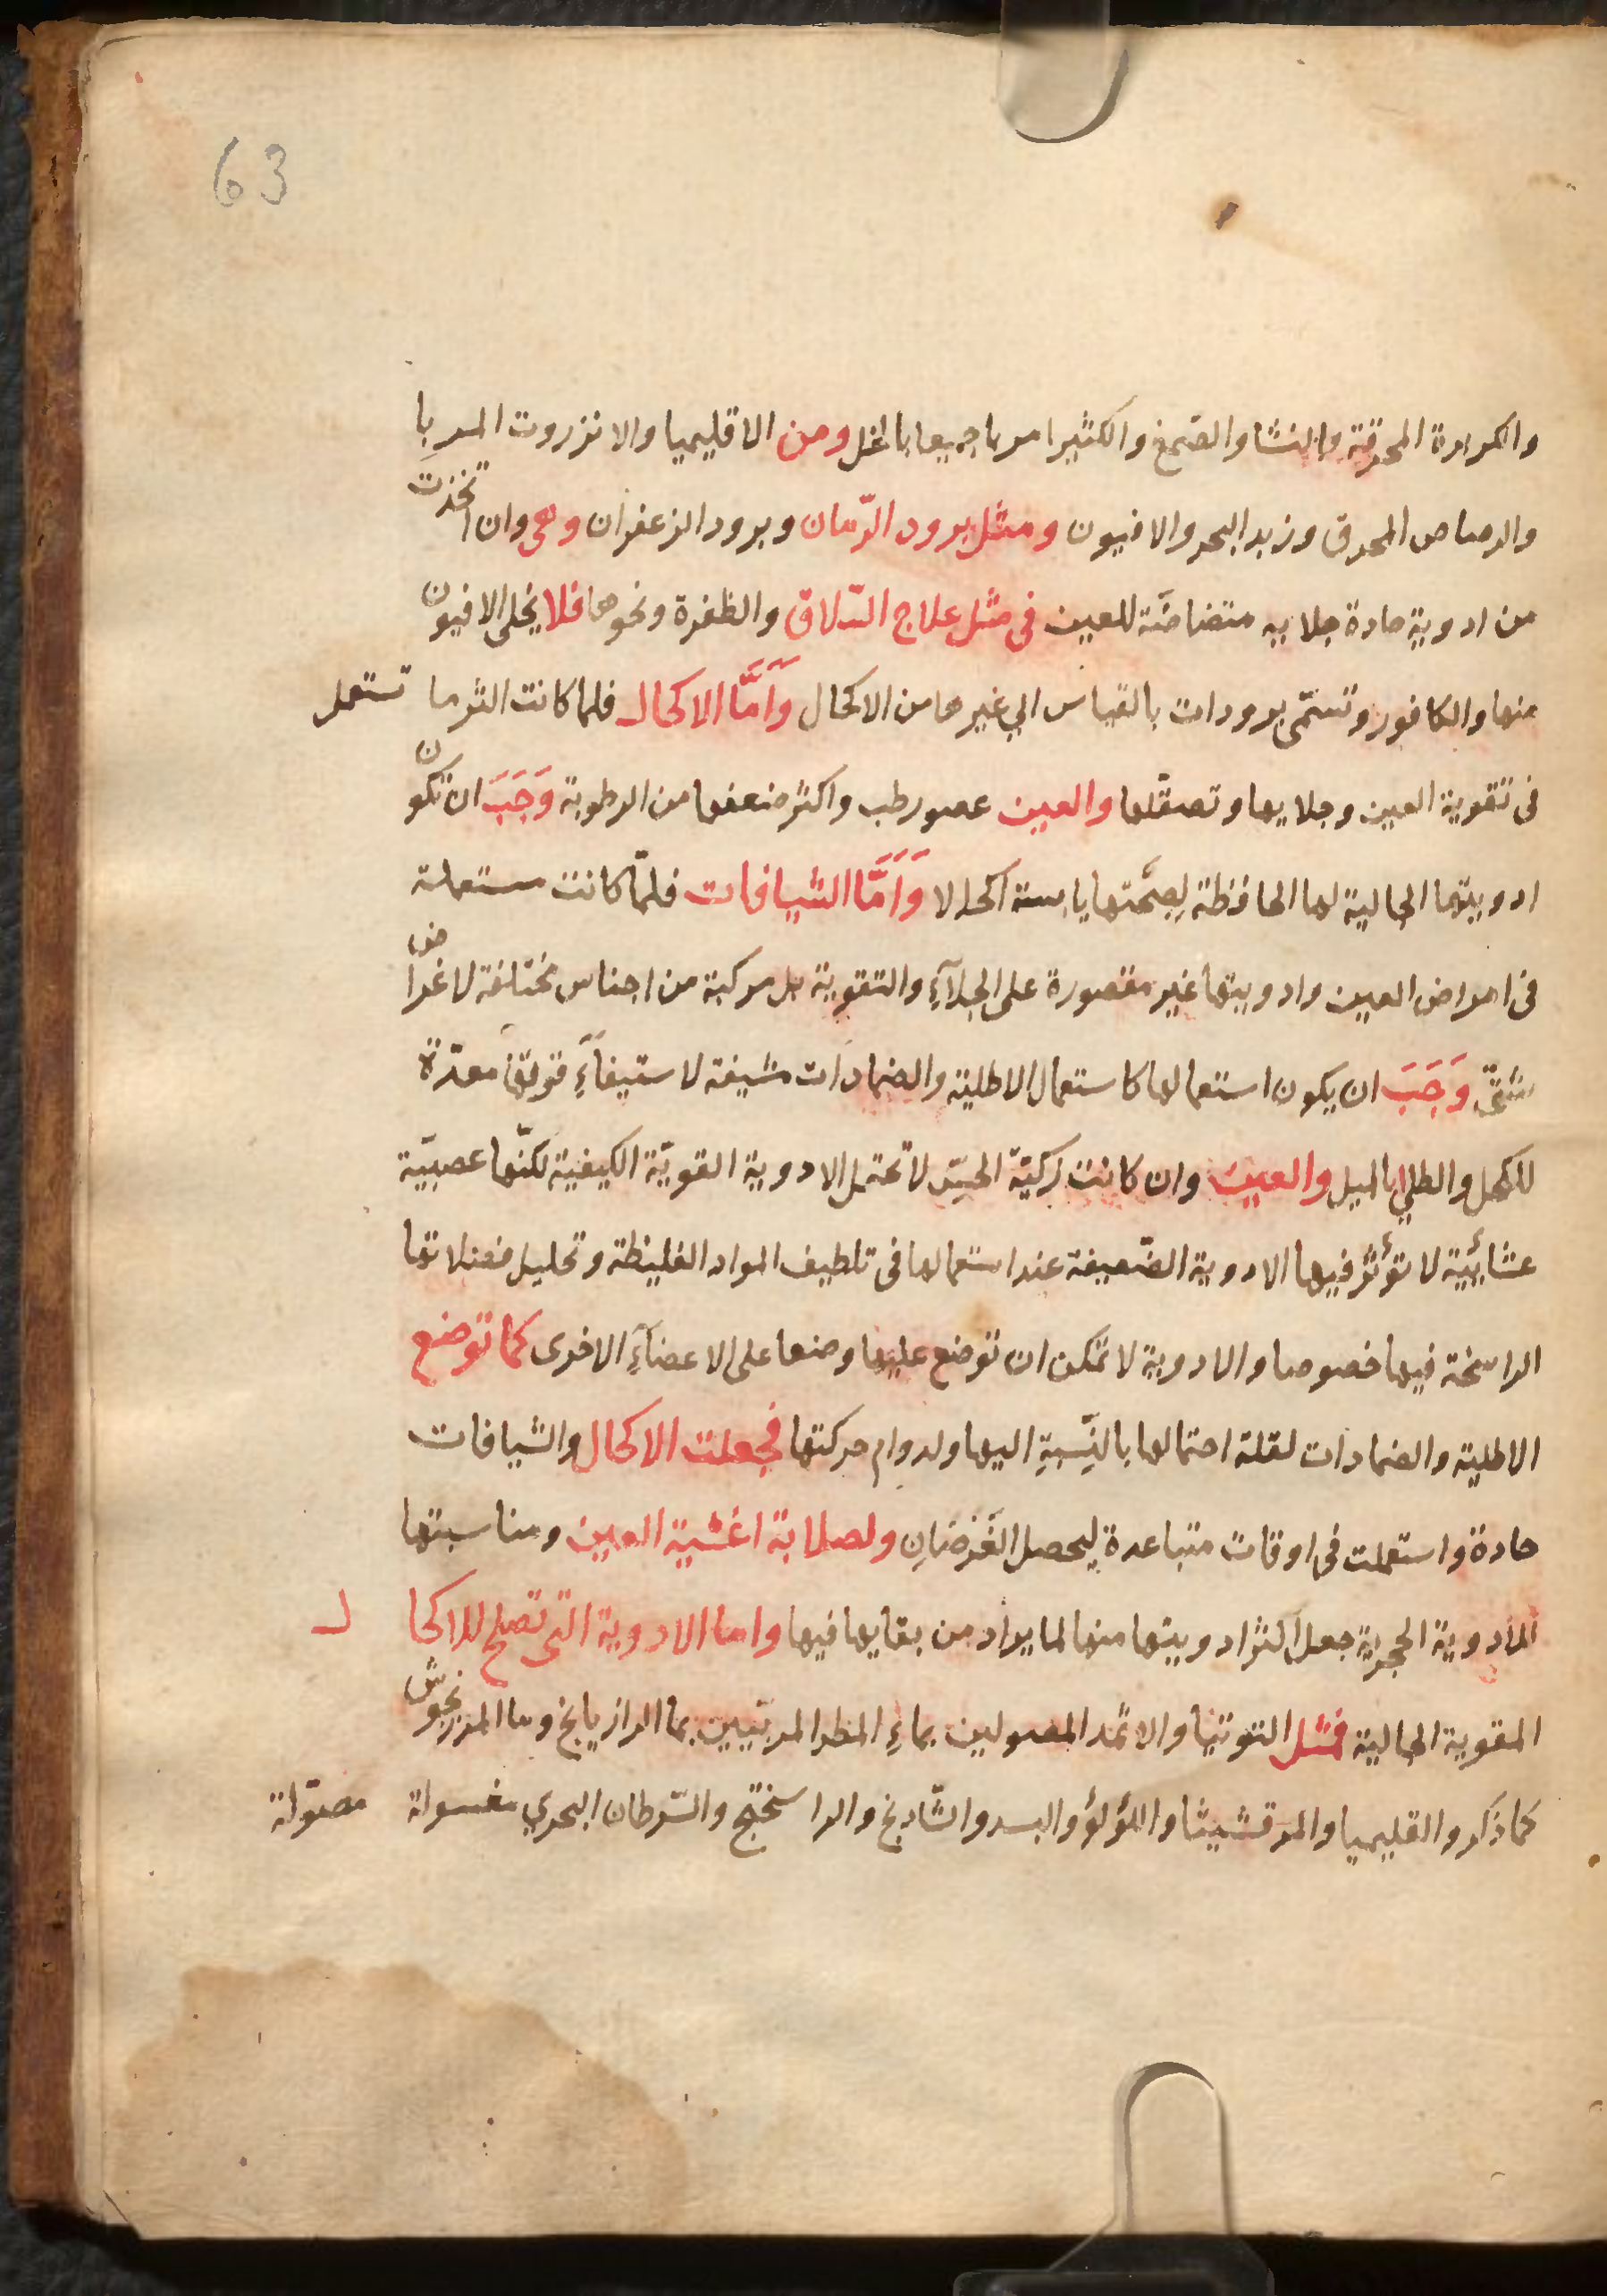 63
والكزبرة المحرقة والنشا والصمغ والكثيرا مربا جميعا بالخل ومن الاقليميا والانزروت المربا
والرصاص المحرق وزبد البحر والافيون ومثل برود الرّمان وبرود الزعفران وهى وان اتخذت
من ادوية حادة جلايه متضامّة للعين فى مثل علاج السّلاق والظفرة ونحوها فلا يخلى الافيون
منها والكافور وتسمّى برودات بالقياس الي غيرها من الاكحال وَاَمَّا الاكحال فلما كانت اكثر ما تستعمل
فى تقوية العين وجلايها وتصقّلها والعين عضو رطب واكثر ضعفها من الرطوبة وَجَبَ ان تكون
ادويتها الجالية لها الحافظة لصحّتها يابسة اكحالا وَاَمَّا الشيافات فلمّا كانت مستعملة
فى امراض العين وادويتها غير مقصورة على الجلآءِ والتقوية بل مركبة من اجناس مختلفة لاغراض
شتىّ وَجَبَ ان يكون استعمالها كاستعمال الاطلية والضمادات مشيفة لاستيفآءِ قوتها معدّة
للكحل والطلي بالميل والعين وان كانت زكيّة الحسّ لا تحتمل الادوية القويّة الكيفية لكنّها عصبيّة
غشائيّية لا تؤثّر فيها الادوية الضّعيفة عند استعمالها فى تلطيف المواد الغليظة وتحليل فضلاتها
الراسخة فيها خصوصا والادوية لا تمكن ان توضع عليها وضعها على الاعضآءِ الاخرى كما توضع
الاطلية والضمادات لقلة احتمالها بالنِّسبةِ اليها ولدوام حركتها فجعلت الاكحال والشيافات
حادة واستعملت فى اوقات متباعدة ليحصل الغَرَضَانِ ولصلابة اغشية العين ومناسبتها
الادوية الحجرية جعل اكثر ادويتها منها لما يراد من بقايها فيها واما الادوية التى تصلح للاكحال
المقوية الجالية فمثل التوتيا والاثمد المغسولين بماءِ المطر المربّيين بما الرازيانج وما المرزنجوش
كما ذكر والقليميا والمرقشيثا واللؤلؤ والبسد والشّادنج والراسختج والسّرطان البحري مغسولة مصوّلة